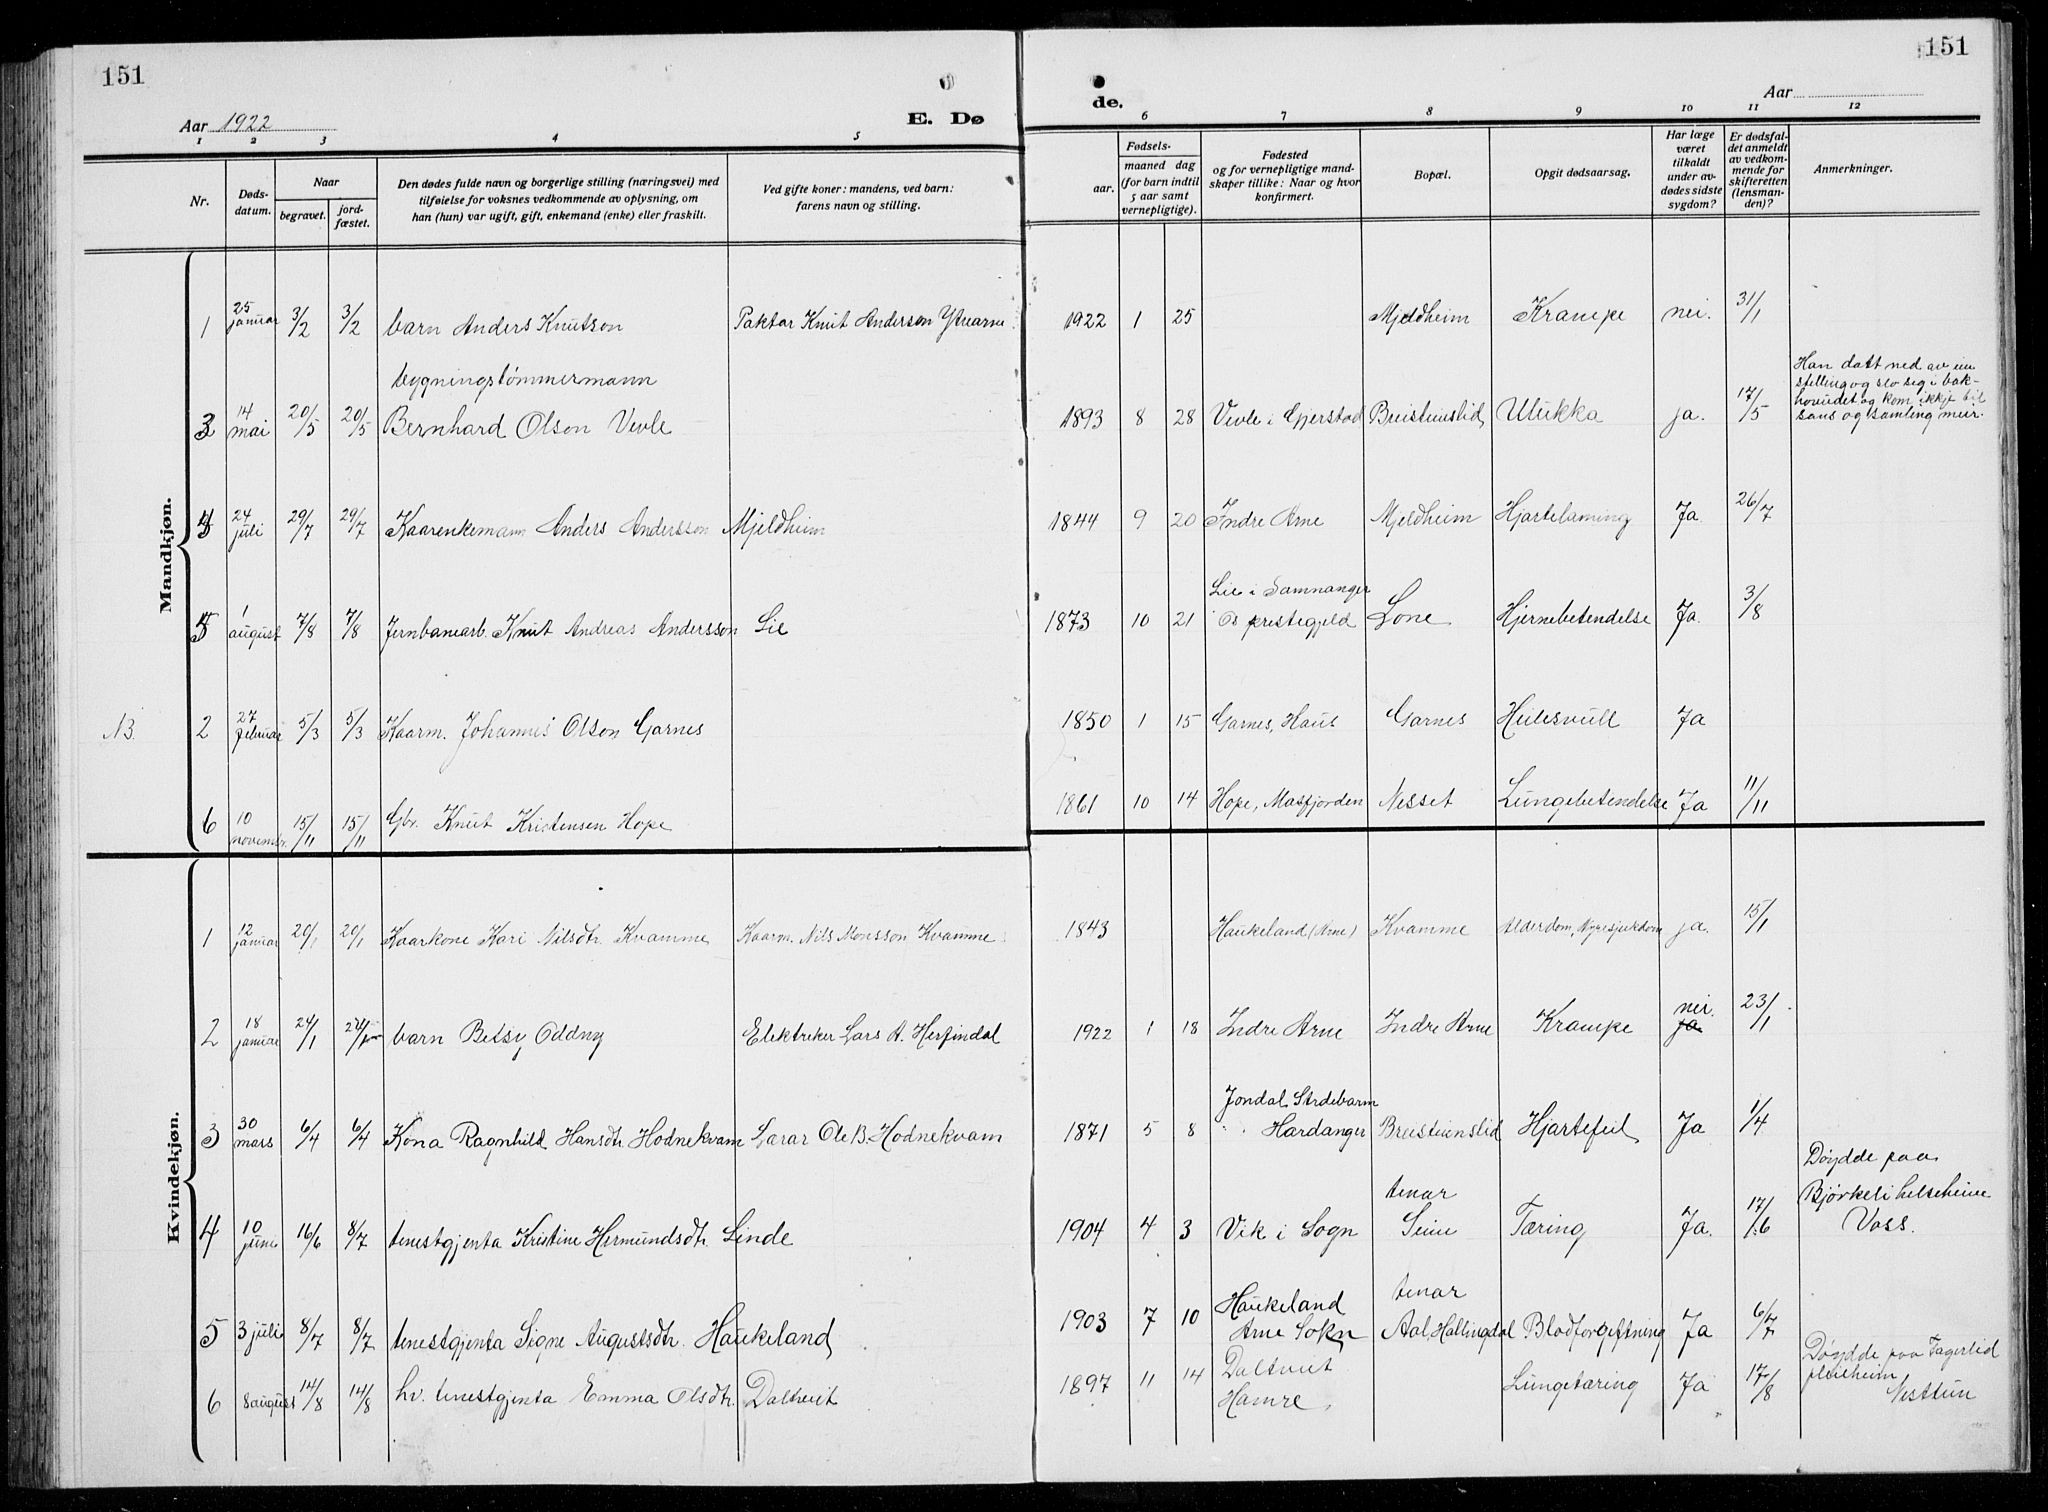 151
151
Aar 1922
E. Dø
de.
Aar
1 2 3 4 5 6 7 8 9 10 11 12
Nr.
Døds-
datum.
Naar
begravet.
jord-
fæstet.
Den dødes fulde navn og borgerlige stilling (næringsvei) med
tilføielse for voksnes vedkommende av oplysning, om
han (hun) var ugift, gift, enkemand (enke) eller fraskilt.
Ved gifte koner: mandens, ved barn:
farens navn og stilling.
Fødsels-
aar.
maaned dag
(for barn indtil
5 aar samt
vernepligtige).
Fødested
og for vernepligtige mand-
skaper tillike: Naar og hvor
konfirmert.
Bopæl.
Opgit dødsaarsag.
Har læge
været
tilkaldt
under av-
dødes sidste
sygdom?
Er dødsfal-
det anmeldt
av vedkom-
mende for
skifteretten
(lensman-
den)?
Anmerkninger.
Mandkjøn.
1 25 januar 3/2 3/2 barn Anders Knutson Paktar Knut Anderson Ytrearne. 1922 1 25 Mjeldheim Krampe nei. 31/1
bygningstømmermann
3 14 mai 20/5 20/5 Bernhard Olson Vevle 1893 8 28 Vevle i Gjerstad Breisteinslid Ulukka ja. 17/5
Han datt ned av ein
stelling og slo seg i bak-
hovudet og kom ikkje til
sans og samling meir.
4 24 juli 29/7 29/7 Kaarenkemann Anders Andersson Mjeldheim 1844 9 20 Indre Arne Mjeldheim Hjartelaming Ja. 26/7
5 1 august 7/8 7/8 Jernbanearb. Knut Andreas Andersson Lie 1873 10 21 Lie i Samnanger
i Os prestegjeld Lone Hjernebetendelse Ja. 3/8
NB. 2 27 februar 5/3 5/3 Kaarm. Johannes Olson Garnes 1850 1 15 Garnes, Haus Garnes Heilesvull Ja
6 10 novembr. 15/11 15/11 Gbr. Knut Kristensen Hope 1861 10 14 Hope, Masfjorden Nesset Lungebetendelse Ja 11/11
Kvindekjøn.
1 12 januar 20/1 20/1 Kaarkone Kari Nilsdtr. Kvamme Kaarm. Nils Monsson Kvamme 1843 Haukeland (Arne) Kvamme Alderdom, Nyresjukdom ja. 15/1
2 18 januar 24/1 24/1 barn Betsy Oddny Elektriker Lars A. Herfindal 1922 1 18 Indre Arne Indre Arne Krampe nei. ja 23/1
3 30 mars 6/4 6/4 Kona Ragnhild Hansdtr Hodnekvam Lærar Ole B. Hodnekvam 1871 5 8 Jondal Strdebarm
" " Hardanger Breisteinslid Hjartefeil Ja 1/4
4 10 juni 16/6 8/7 tenestgjenta Kristine Hermundsdtr. Linde 1904 4 3 Vik i Sogn tenar
Seim Tæring Ja. 17/6
Døydde paa
Bjørkeli helseheim
Voss.
5 3 juli 8/7 8/7 tenestgjenta Signe Augustsdtr. Haukeland 1903 7 10 Haukeland
Arne Sokn tenar
Aal, Hallingdal Blodforgiftning Ja 6/7
6 8 august 14/8 14/8 hv. tenestgjenta Emma Olsdtr. Daltveit 1897 11 14 Daltveit
Hamre. Lungetæring Ja 17/8
Døydde paa Fagerlid
pleieheim
Nesttun